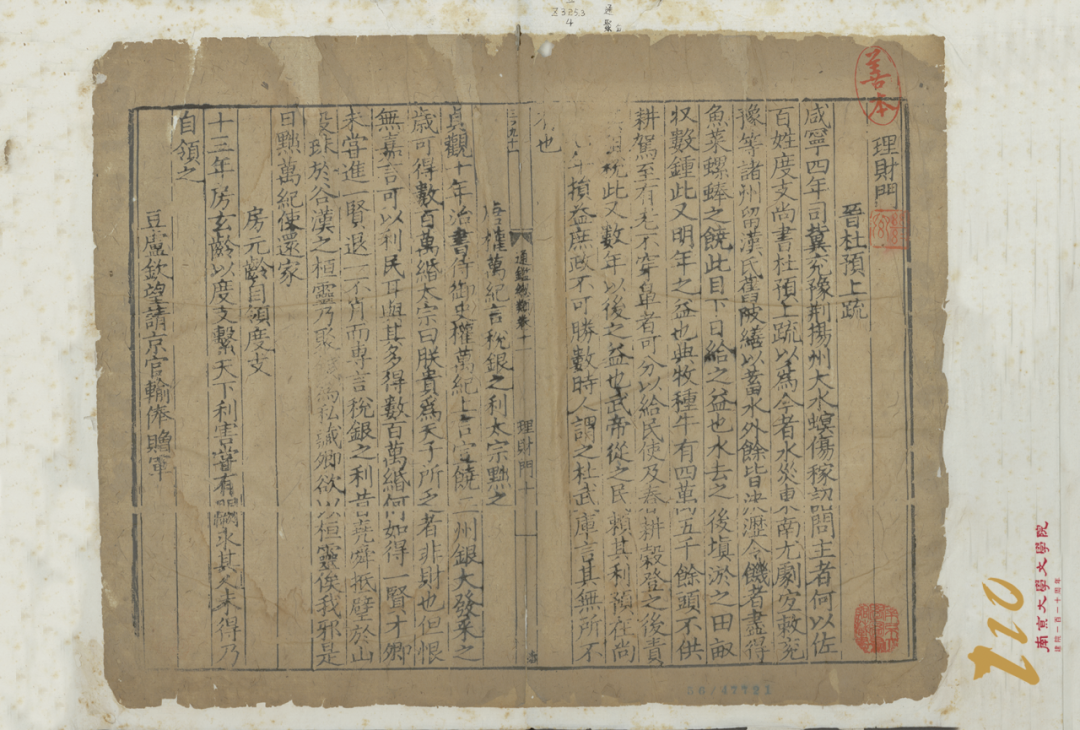 Z3253
4
通
鑒
善本
理財門
晉杜預上疏
咸寧四年司冀兗豫荆揚州大水螟傷稼詔問主者何以佐
百姓度支尚書杜預上疏以爲今者水災東南尤劇宜敕兗
豫等諸州留漢氏舊陂繕以蓄水外餘皆決瀝令饑者盡得
魚菜螺蜯之饒此目下日給之益也水去之後填淤之田畝
収數鍾此又明年之益也典牧種牛有四萬五千餘頭不供
耕駕至有老不穿鼻者可分以給民使及春耕穀登之後責
稅此又數年以後之益也武帝從之民賴其利預在尚
損益庶政不可勝數時人謂之杜武庫言其無所不
也
通鑑 卷十一
理財門十
權萬紀言稅銀之利太宗黜之
貞觀十年治書侍御史權萬紀上言宣饒二州銀大發采之
歲可得數百萬緡太宗曰朕貴爲天子所乏者非財也但恨
無嘉言可以利民耳與其多得數百萬緡何如得一賢才卿
未嘗進一賢退一不肖而專言稅銀之利昔堯舜抵璧於山
投珠於谷漢之桓靈乃聚 爲私藏卿欲以桓靈俟我邪是
日黜萬紀使還家
房元齡自領度支
十三年房玄齡以度支繫天下利害嘗有闕求其人未得乃
自領之
豆盧欽望請京官輸俸贍軍
56/47791
110
南京大學文學院
建院一百一十周年